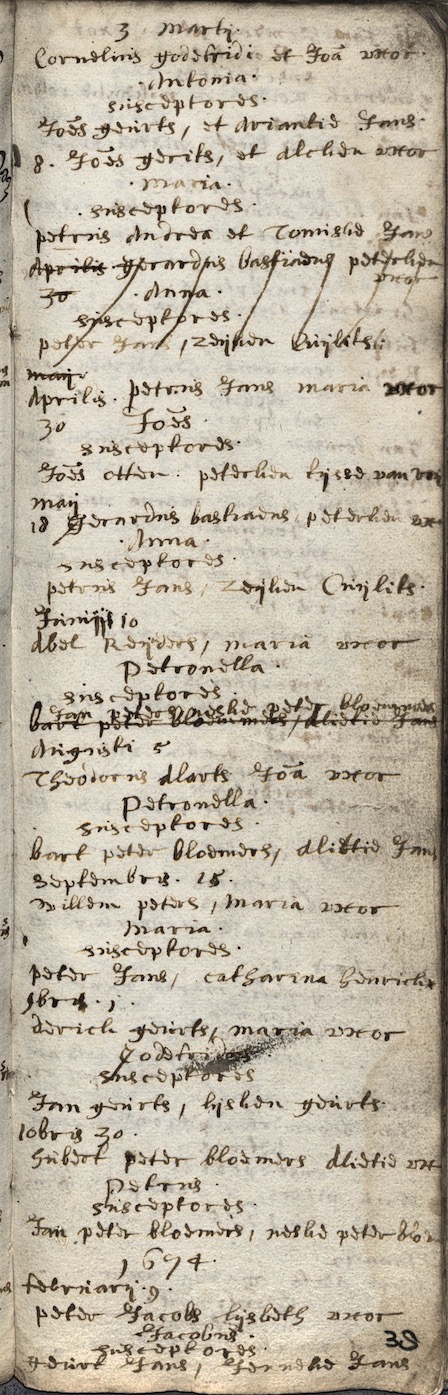 3 Martij.
Cornelius godefridi et Joã uxor
Antonia.
susceptores.
Joẽs geurts, et Ariantie Jans
8. Joẽs gerits, et Alchen uxor
Maria.
susceptores.
petrus Andrea et Tonislie Jans
Aprilis. gerardus bastiaens peterchen
uxor
30 Anna.
susceptores.
peter Jans, Zeijken
maij
Aprilis. petrus Jans maria uxor
30 Joẽs.
susceptores.
Joẽs otten. peterchen tijsse van
maij
18 gerardus bastiaens, peterchen ux
Anna.
susceptores.
petrus Jans, Zeijken
Junij 10
Abel Reijders, maria uxor
Petronella.
susceptores.
Jan peters neslie peter bloemmers
bart peter bloemmers, Alietie Jans
Augusti 5
Theodorus Alarts Joã uxor
Petronella.
susceptores.
bart peter bloemers, Alietie Jans
Septembris. 15.
Willem peters, Maria uxor
Maria.
susceptores.
peter Jans, catharina henrichs
9bris. 1.
derich geurts, maria uxor
susceptores
Jan geurts, lijsken geurts
10bris 30.
hubert peter bloemers Alietie ux
Petrus.
susceptores.
Jan peter bloemers, neslie peter bloe
1694.
februarij. 9.
peter Jacobs lijsbeth uxor
Jacobus.
38
susceptores.
geurt Jans, Jenneslie Jans